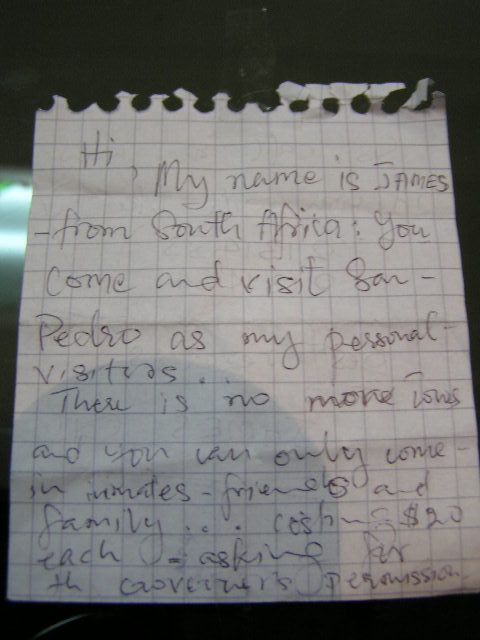 Hi
, My name is JAMES
- from South Africa: You
come and visit San -
Pedro as my personal -
visitors..
There is no more Tours
and you can only come -
in inmates - friends and
family... costing $20
each - asking for
th Governers Permission